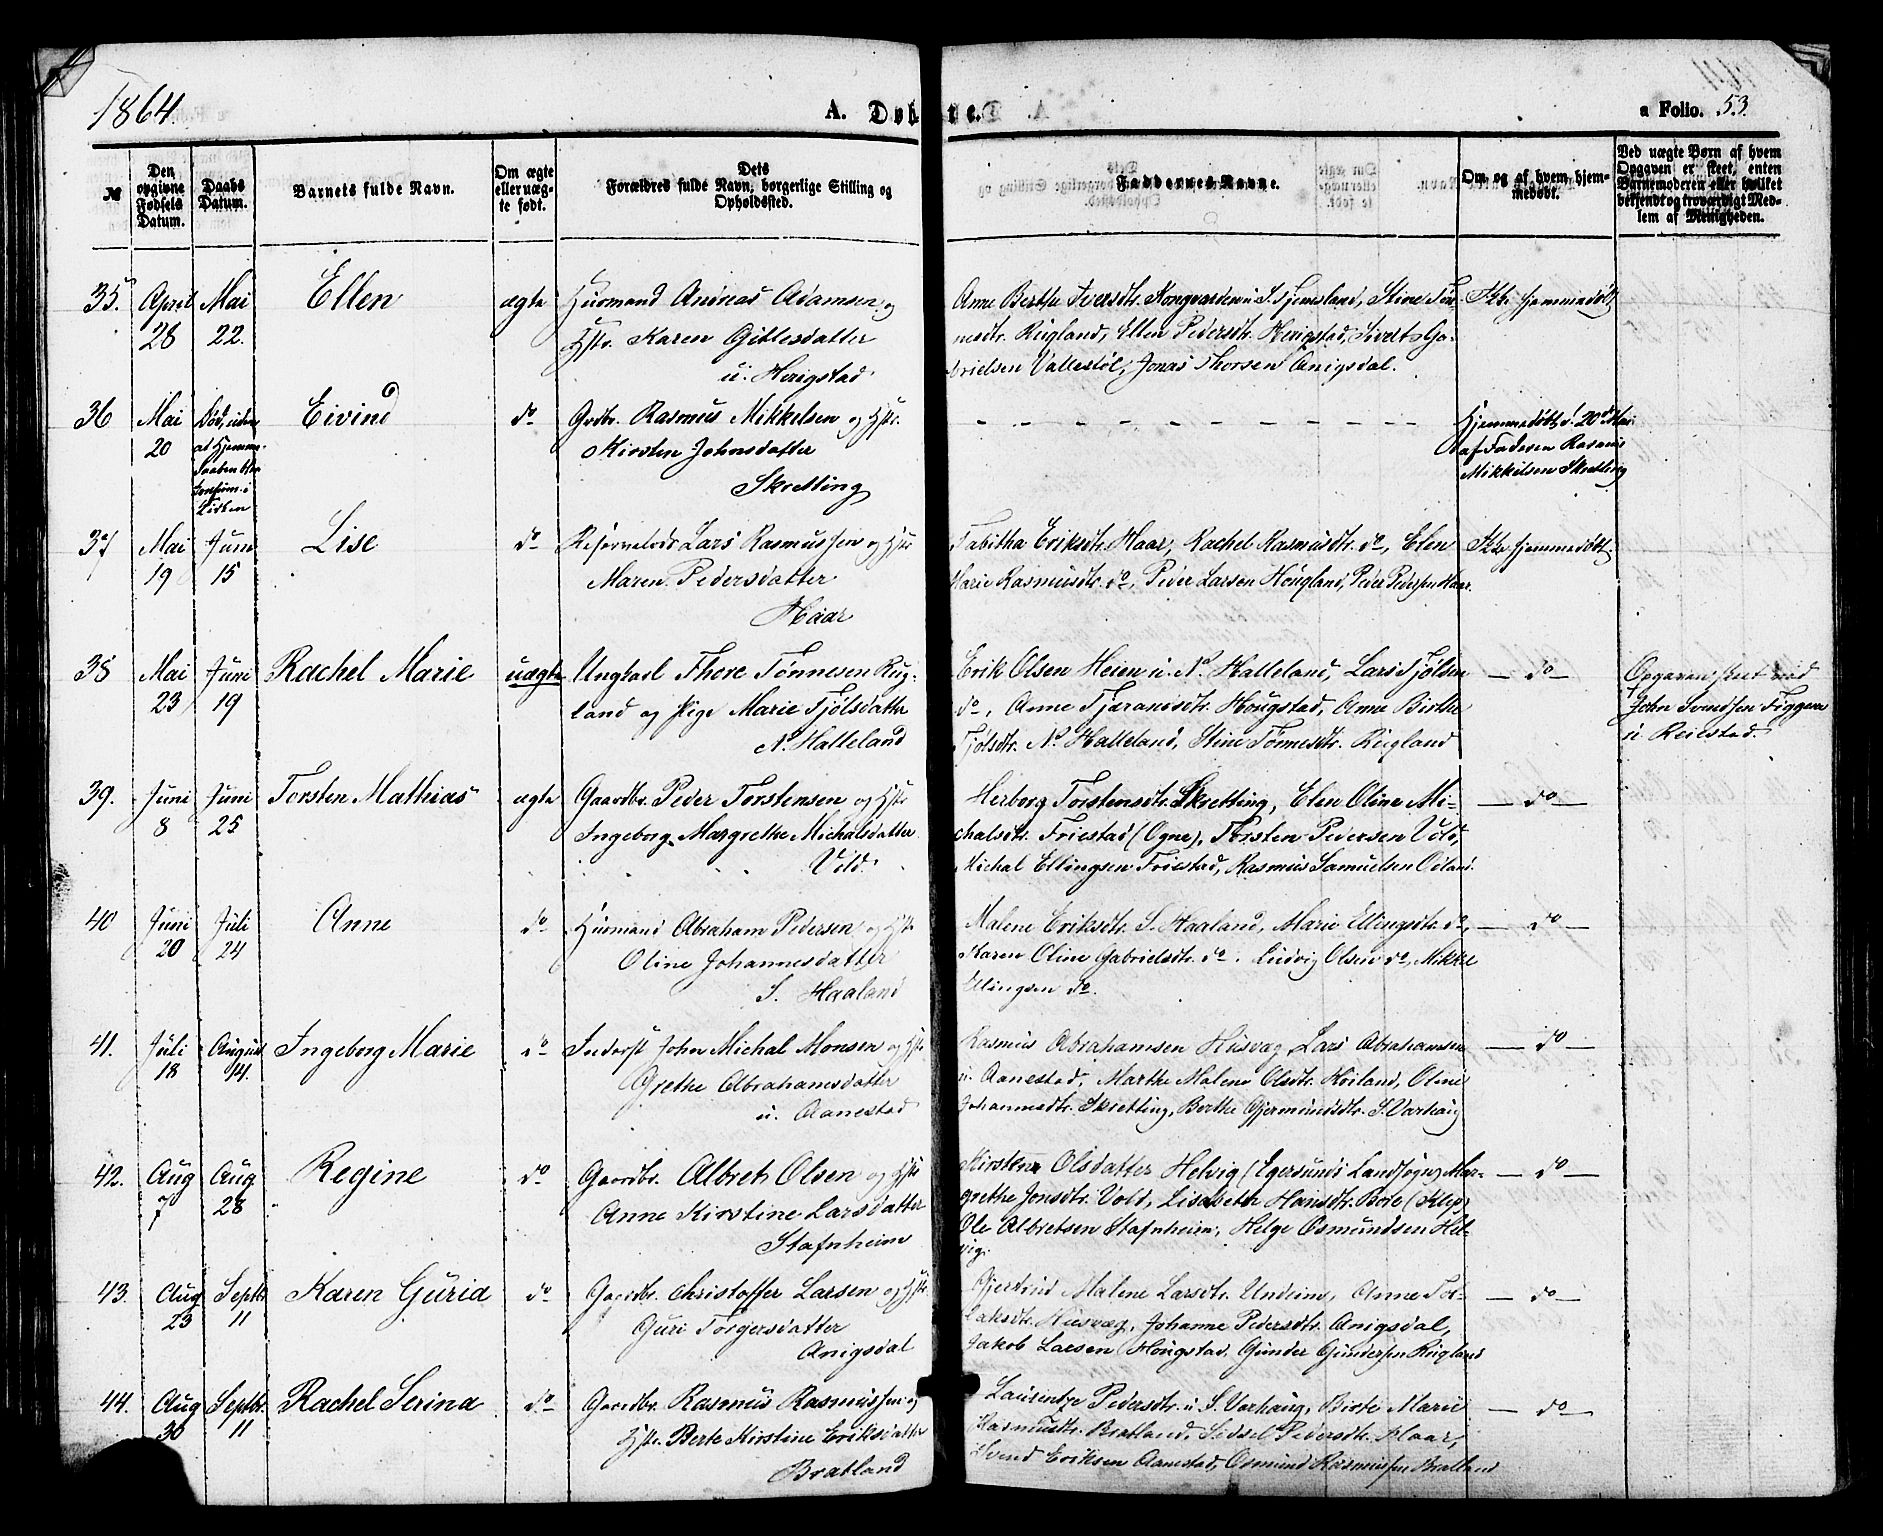 1864.
A. Døbte.
a Folio. 53.
№
Den opgivne Fødsels Datum.
Daabs Datum.
Barnets fulde Navn.
Om ægte eller uægte født.
Dets Forældres fulde Navn, borgerlige Stilling og Opholdssted.
Faddernes Navne.
Om og af hvem hjemmedøbt.
Ved uægte Børn af hvem Opgaven er skeet, enten Barnemoderen eller hvilket bekjendt og troværdigt Medlem af Menigheden.
35. April 28 Mai 22. Ellen ægte
Huusmand Andreas Adamsen og
Hstr. Karen Gitlesdatter
u. Herigstad
Ane Berthe Iversdtr. Kongvarden u. S. Fjemesland, Stine Tøn-
nesdtr. Rugland, Ellen Pedersdtr. Herigstad, Sivert Ga-
brielsen Vallestøl, Jonas Thorsen Anigsdal.
Ikke hjemmedøbt
36 Mai 20
Død, uden
at Hjemme-
Daaben blev
Kirken
Eivind do
Grdbr. Rasmus Mikkelsen og Hstr.
Kirsten Johnsdatter
Skretting
Hjemmedøbt d. 20de Mai
af Faderen Rasmus
Mikkelsen Skretting
37 Mai 19 Juni 15 Lise do
Reservelods Lars Rasmussen og Hstr
Maren Pedersdatter
Haar
Tabitha Eriksdtr. Haar, Rachel Rasmusdtr. do, Elen
Marie Rasmusdtr. do, Peder Larsen Hougland, Peder Pedersen Haar.
Ikke hjemmedøbt
38 Mai 23 Juni 19 Rachel Marie uægte
Ungkarl Thore Tønnesen Rug-
land og Pige Marie Tjølsdatter
N. Halleland
Erik Olsen Heien u. N. Halleland, Lars Tjølsen
do, Anne Tjæransdtr. Hougstad, Anne Birthe
Tjølsdtr. N. Halleland, Stine Tønnesdtr. Rugland
— do —
Opgaven skeet ved
John Svendsen Figgen
u. Reiestad.
39. Juni 8 Juni 25 Torsten Mathias ægte
Gaardbr. Peder Torstensen og Hstr
Ingeborg Margrethe Michalsdatter
Vold.
Herborg Torstensdtr. Skretting, Elen Oline Mi-
chalsdtr. Friestad (Ogne), Torsten Pedersen Vold,
Michal Ellingsen Friestad, Rasmus Samuelsen Odland.
— do —
40 Juni 20 Juli 24 Anne do
Huusmand Abraham Pedersen og Hstr
Oline Johannesdatter
S. Haaland
Malene Eriksdtr. S. Haaland, Marie Ellingsdtr. do,
Karen Oline Gabrielsdtr. do. Ludvig Olsen do, Mikkel
Ellingsen do.
— do —
41. Juli 18 August 14. Ingeborg Marie do
Inderst John Michal Monsen og Hstr
Grethe Abrahamsdatter
u. Aanestad
Rasmus Abrahamsen Husvæg, Lars Abrahamsen
u. Aanestad, Marthe Malene Olsdtr. Høiland, Oline
Johannesdtr. Skretting, Berthe Gjermundsdtr. S. Varhaug
— do —
42. Aug 7 Aug 28 Regine do
Gaardbr. Albret Olsen og Hstr
Anne Kirstine Larsdatter
Stafnheim
Kirstene Olsdatter Helvig (Egersunds Landsogn) Mar-
grethe Jonsdtr. Vold, Lisabeth Hansdtr. Bore (Klep)
Ole Albretsen Stafnheim, Helge Osmundsen Hel-
vig.
— do —
43. Aug 23 Septbr 11 Karen Gurid do
Gaardbr. Christoffer Larsen og Hstr.
Guri Torgersdatter
Anigsdal
Gjertrud Malene Larsdtr. Undeim, Anne Tor-
laksdtr. Husvæg, Johanne Pedersdtr. Anigsdal,
Jakob Larsen Hougstad, Gunder Gundersen Rugland
— do —
44. Aug 30 Septbr. 11 Rachel Serina do
Gaardbr. Rasmus Rasmussen og
Hstr. Berte Kirstine Eriksdatter
Bratland
Laurentze Pedersdtr. u. S. Varhaug, Birte Marie
Rasmusdtr. Bratland, Sidsel Pedersdtr. Haar,
Svend Eriksen Aanestad, Osmund Rasmussen Bratland
— do —